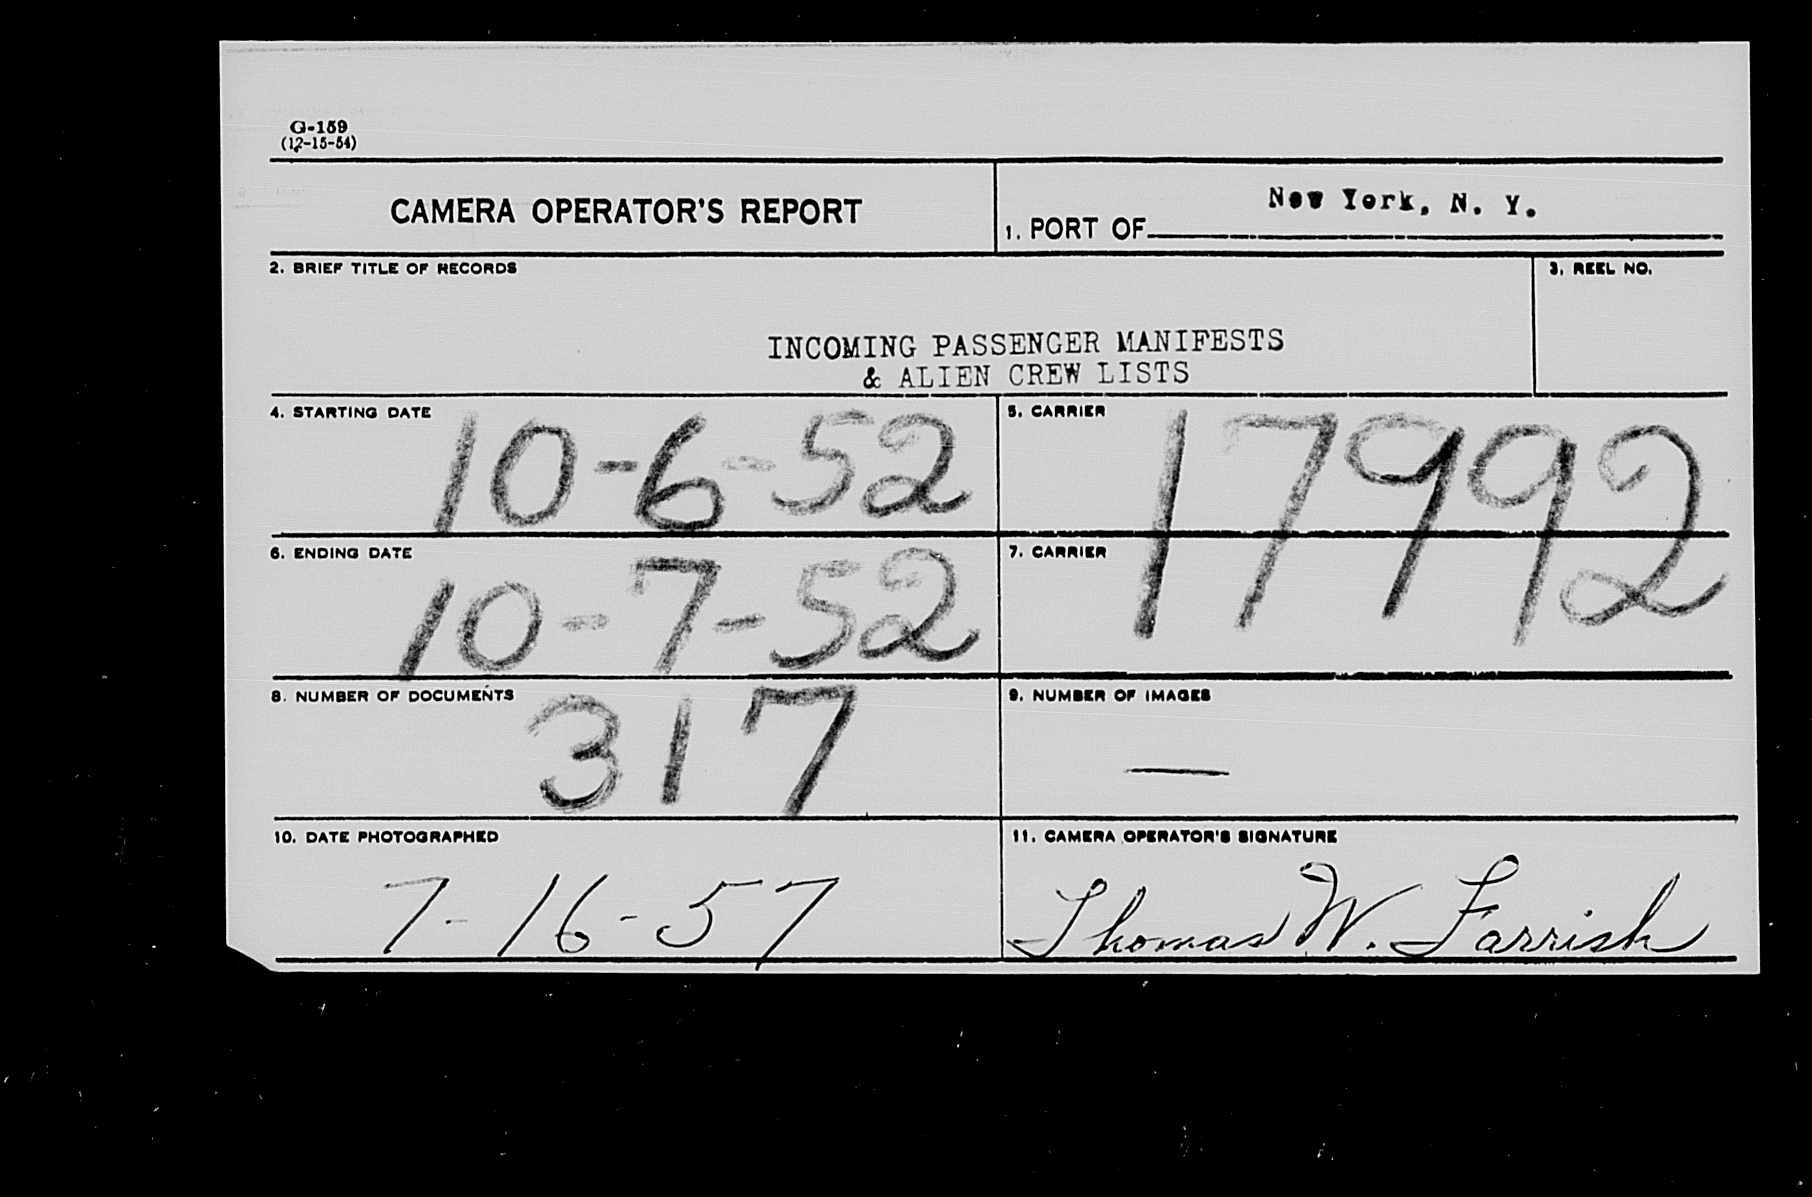 G-159
(12-15-54)
CAMERA OPERATOR'S REPORT
1. PORT OF New York, N. Y.
2. BRIEF TITLE OF RECORDS
3. REEL NO.
INCOMING PASSENGER MANIFESTS
& ALIEN CREW LISTS
4. STARTING DATE
10-6-52
5. CARRIER
17992
6. ENDING DATE
10-7-52
7. CARRIER
8. NUMBER OF DOCUMENTS
317
9. NUMBER OF IMAGES
—
10. DATE PHOTOGRAPHED
7-16-57
11. CAMERA OPERATOR'S SIGNATURE
Thomas W. Farrish